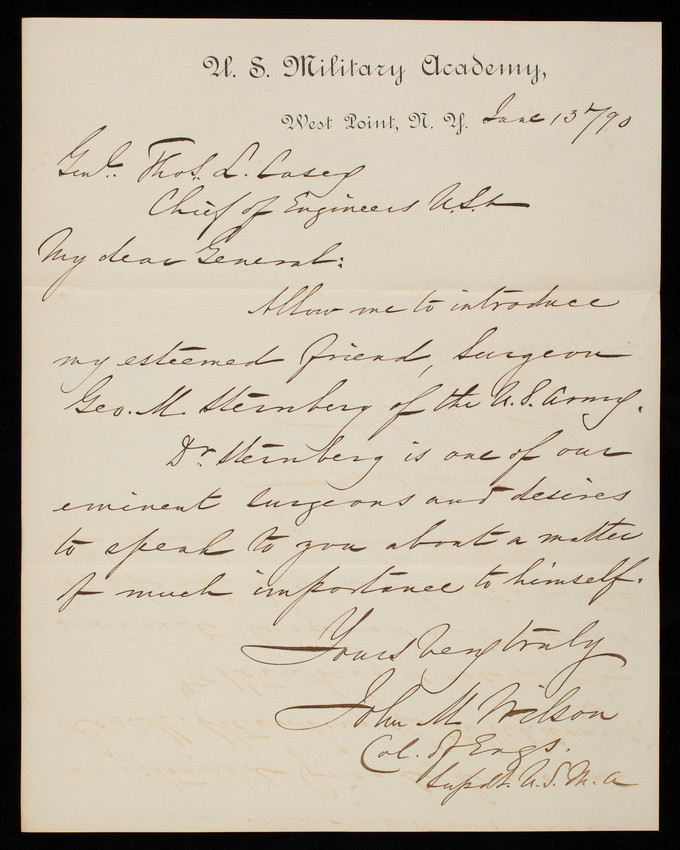 U. S. Military Academy,
West Point, N. Y. June 13th/90
Genl. Thos. L. Casey
Chief of Engineers U.S.A
My dear General:
Allow me to introduce
my esteemed friend, Surgeon
Geo. M. Sternberg of the U.S. Army.
Dr. Sternberg is one of our
eminent surgeons and desires
to speak to you about a matter
of much importance to himself.
Yours very truly
John M Wilson
Col. of Engs.
Supdt. U.S.M.A